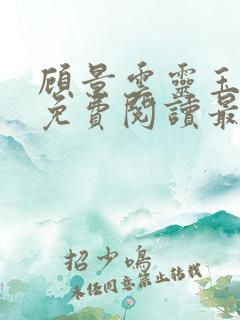 顾景雲靈玉
免費閱讀最
招少鳴
未经同意禁止转载